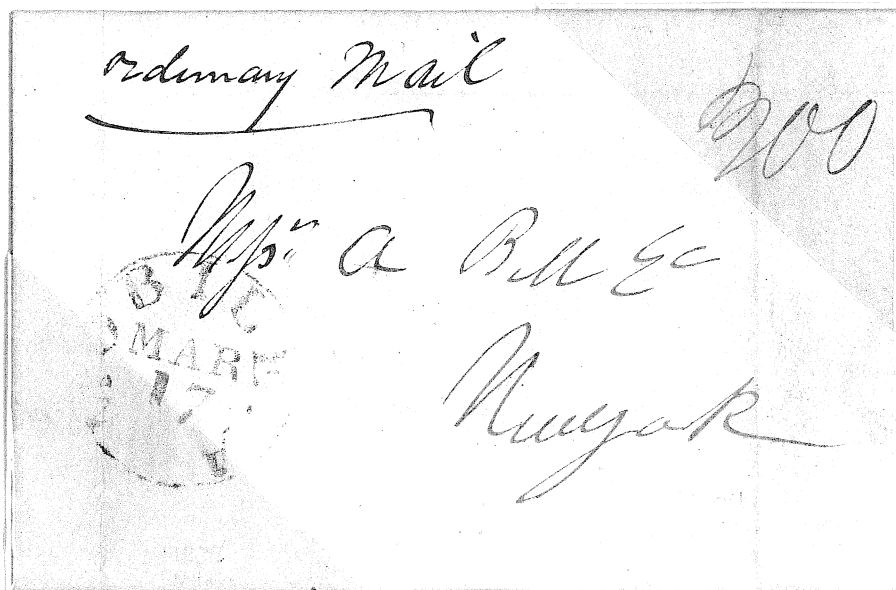 ordinary Mail
200
Messrs A Bell &c
New york
BIL
MAR
17